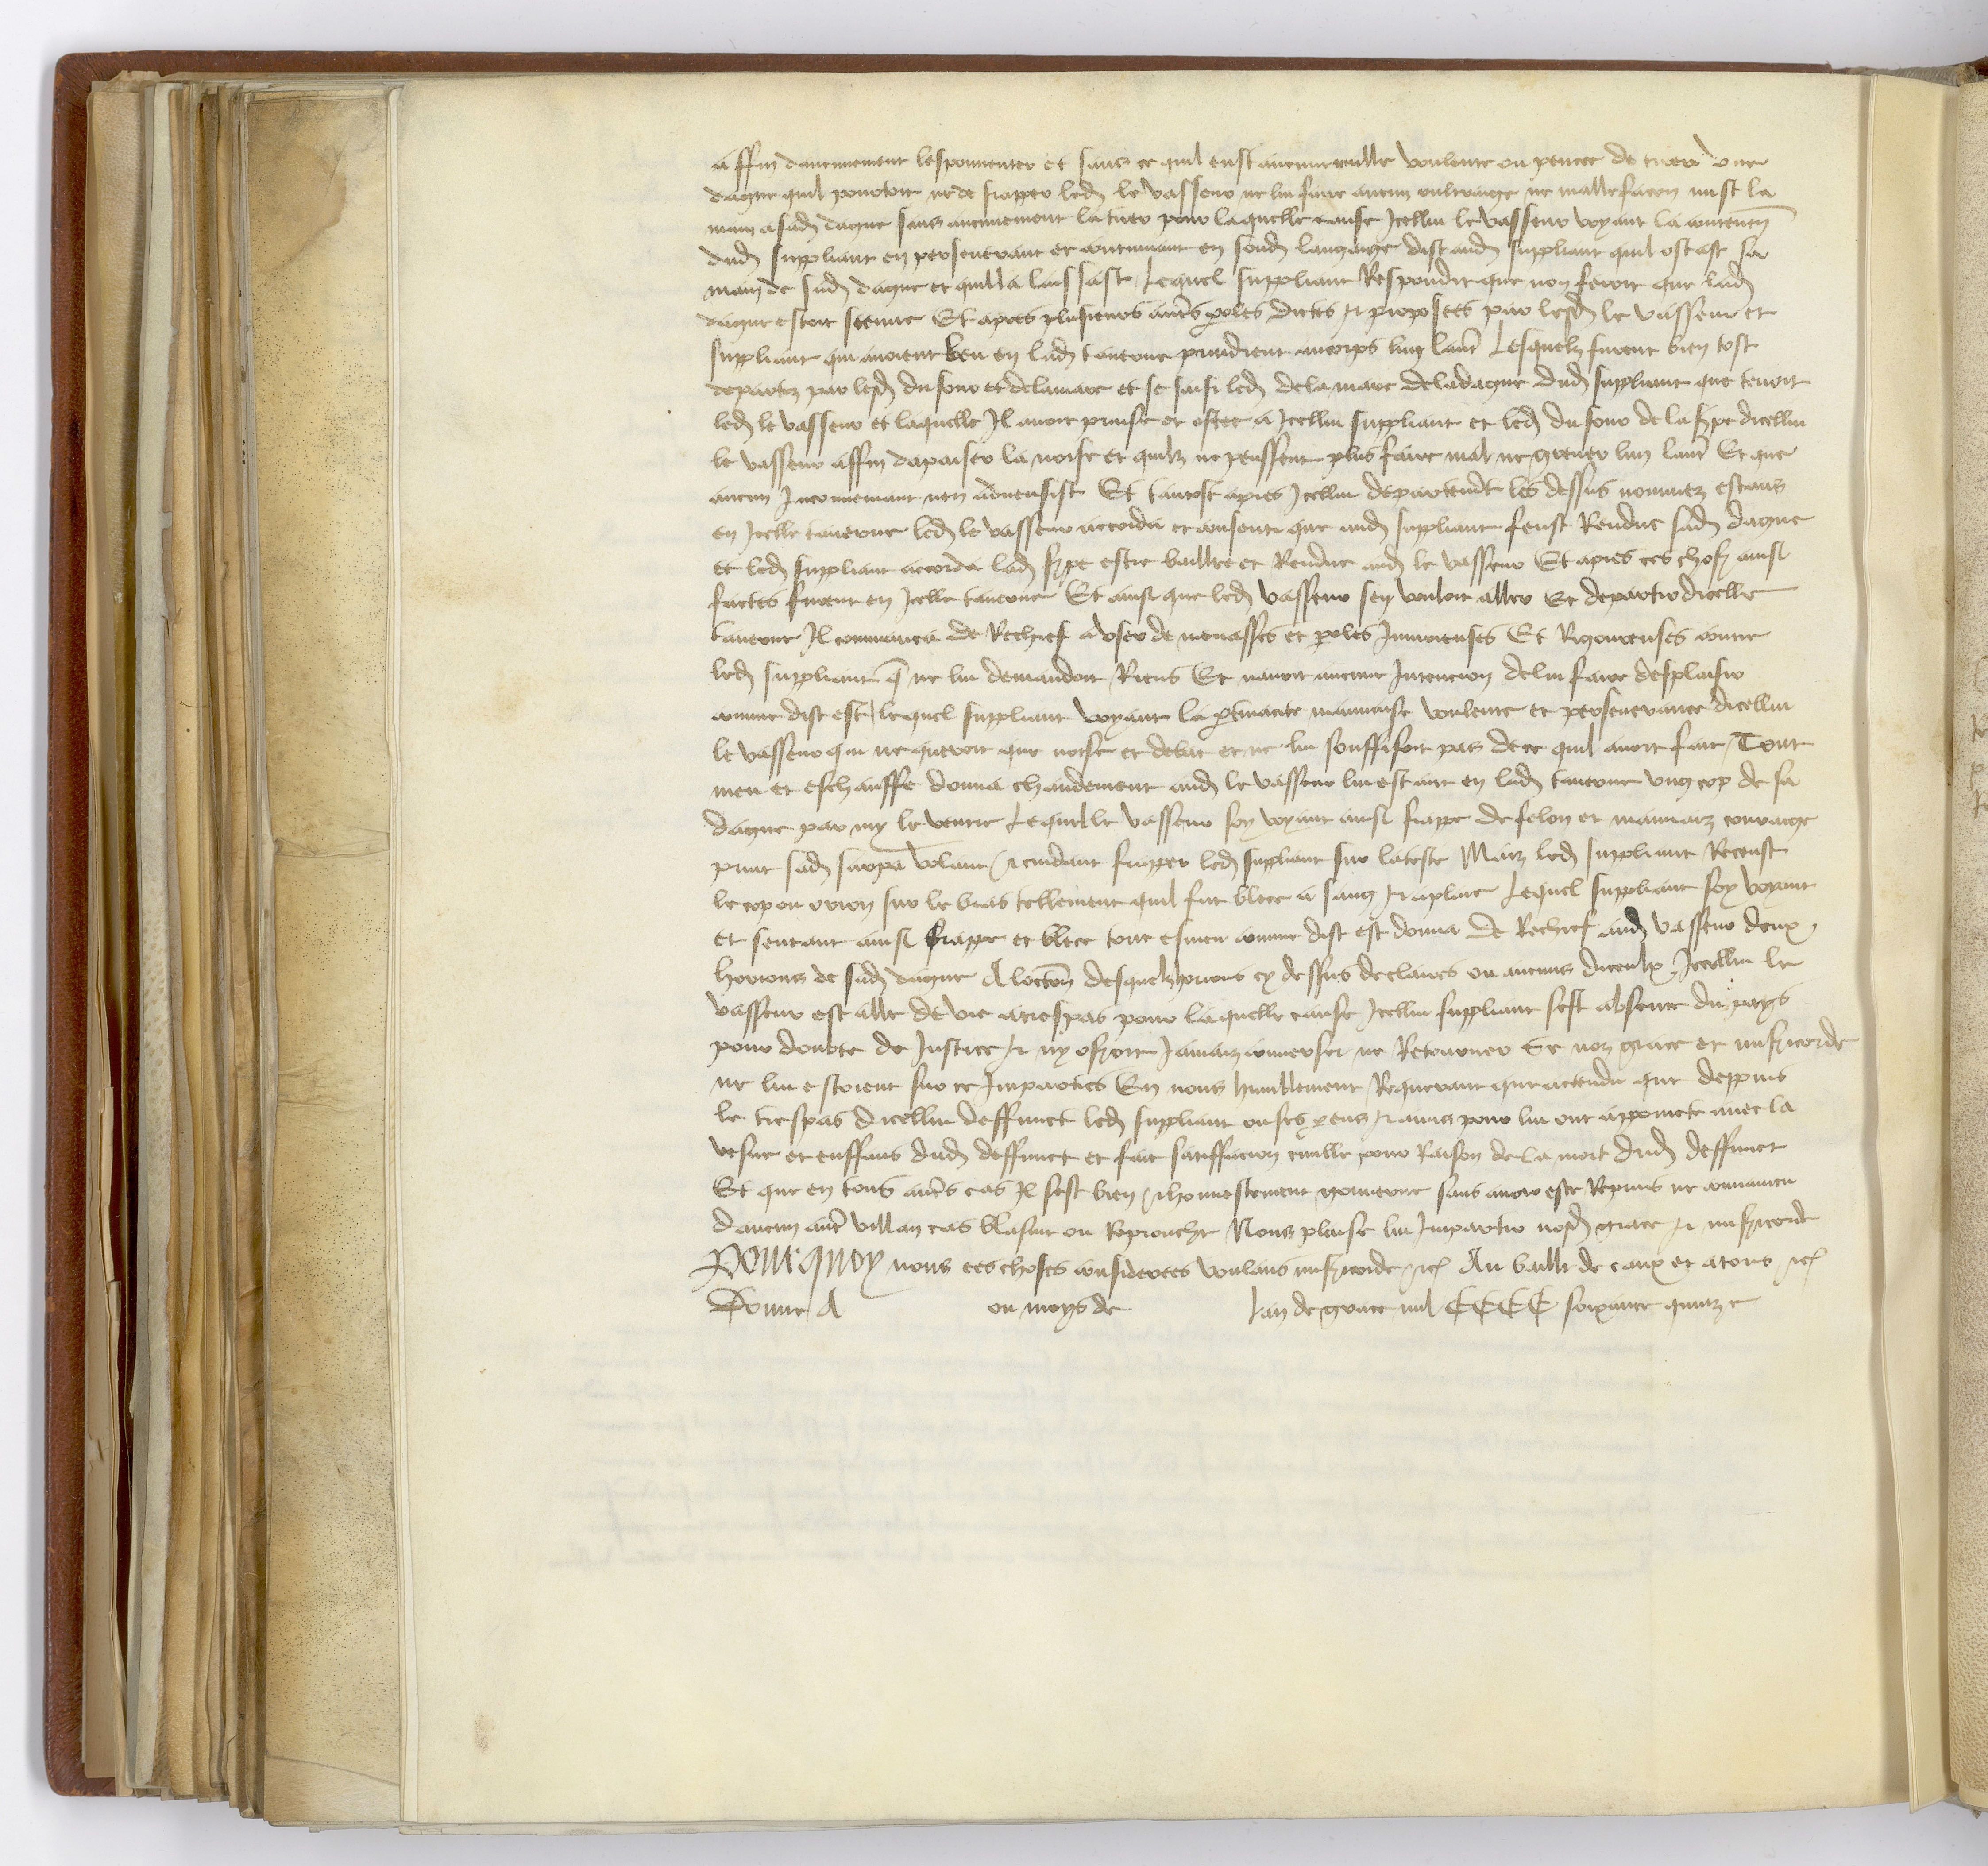 affin daucunement lespouenter et sans ce quil eust aucune voulente ou pencee de tirer une
dague quil portoit ne de frapper led le vasseur ne lui faire aucun oultraige ne malle facon mist la
main a sad dague sans aucunement la tirer pour laquelle cause Icellui le vasseur voyant la conten
dud suppliant en perseverant et continuant en sond langaige dist aud suppliant quil ostast sa
main de sad dague et quil la laissast Lequel suppliant Respondit que non feroit que lad
dague estoit sienne Et apres plusieurs autres poles dictes et proposees par lesd le vasseur et
suppliant qui auoient beu en lad tauerne prindrent au corps lun laut Lesquelz furent bien tost
departiz par lesd du four et delamare et se saisi led delamare de la dague dud suppliant que tenoit
led le vasseur et laquelle Il auoit prinse et ostee a Icellui suppliant et led du four de la serpe dicellui
le vasseur affin dapaiser la noise et quilz ne peussent plus faire mal ne greuer lun laut Et que
aucun Inconueniant nen aduensist Et tantost apres Icellui departemt les dessus nommez estans
en Icelle tauerne led le vasseur accorda et consenti que aud suppliant feust Rendue sad dague
et led suppliant accorda lad serpe estre baillee et Rendue aud le vasseur Et apres ces choses ainsi
faictes furent en Icelle tauerne Et ainsi que led vasseur sen vouloit aller et departir dicelle
tauerne Il commanca de Rechief a user de menasses et poles Iniurieuses Et Rigoureuses contre
led suppliant q ne lui demandoit Riens Et nauoit aucune Intencion de lui faire desplaisir
comme dist est lequel suppliant voyant la ptinacite mauuaise voulente et perseuerance dicellui
le vasseur qui ne queroit que noise et debat et ne lui souffisoit pas de ce quil auoit fait Tout
meu et eschauffe donna chaudement aud le vasseur lui estant en lad tauerne ung cop de sa
dague par my le ventre Lequel le vasseur soy voyant ainsi frappe de felon et mauuaiz couraige
print sad sarpe volant et cuidant frapper led supliant sur la teste Maiz led suppliant Receust
le cop ou orion sur le bras tellement quil fut blece a sang et a playe Lequel suppliant soy voyant
et sentant ainsi frappe et blece tout esmeu comme dist est donna de Rechief aud vasseur deux
horions de sad dague A loccon desquelz horions cy dessus declairez ou aucuns diceulx Icellui le
vasseur est alle de vie a trespas pour laquelle cause Icellui suppliant sest absente du pays
pour doubte de Justice et ny oseroit Jamaiz conuerser ne Retourner se noz grace et misericorde
ne lui estoient sur ce Imparties En nous humblement Requerant que actendu que deppuis
le trespas dicellui deffunct led suppliant ou ses pens et amis pour lui ont appoincte auec la
vefue et enffans dud deffunct et fait satiffacion ciuille pour Raison de la mort dud deffunct
Et que en tous auts cas Il sest bien et honnestement gouuerne sans auoir este Reprins ne conuaincu
daucun aut villain cas blasme ou Reprouche Nous plaise lui Impartir nosd grace et misericorde
Pourquoy nous ces choses considerees voulans misericorde etc Au bailli de caux et a tous etc
Donne A ou moys de Lan de grace mil CCCC soixante quinze